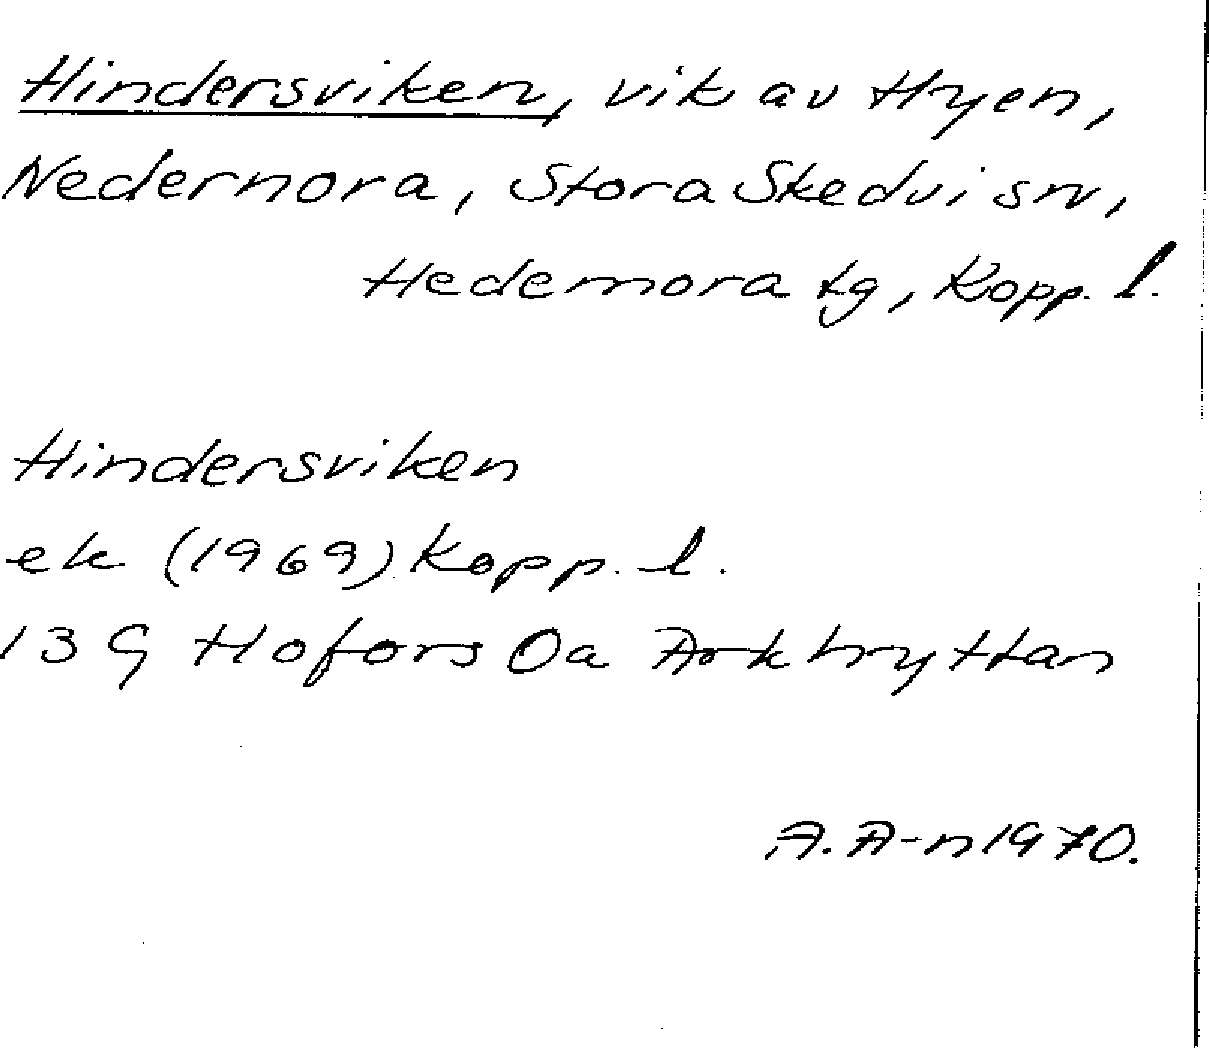 Hindersviken, vik av Hyen,
Nedernora, Stora Skedvi sn,
Hedemora tg, Kopp. l.
Hindersviken
ek (1969) Kopp. l.
13 G Hofors 0a Arkhyttan
A. A-n 1970.